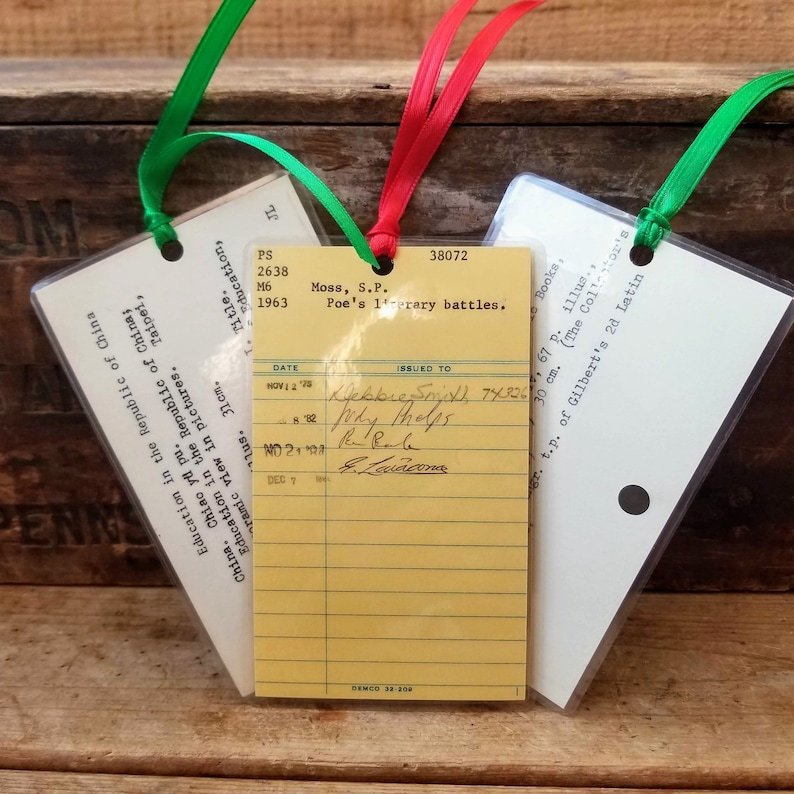 PS 38072
2638
M6 Moss, S.P.
1963 Poe's literary battles.
DATE ISSUED TO
NOV 12 '75 Debbie Smith 74326
8 '82 Judy Phelps
NO 21
DEC 7
DEMCO 32-209
Education in the Republic of China
Chiao yü pu.
China. Education in the Republic of China;
Education view in pictures. Taipei,
illus. 31cm.
Education,
Title.
JL
Books,
67 p. illus.,
30 cm. (The Collector's
t.p. of Gilbert's 2d Latin
OM
PENNS